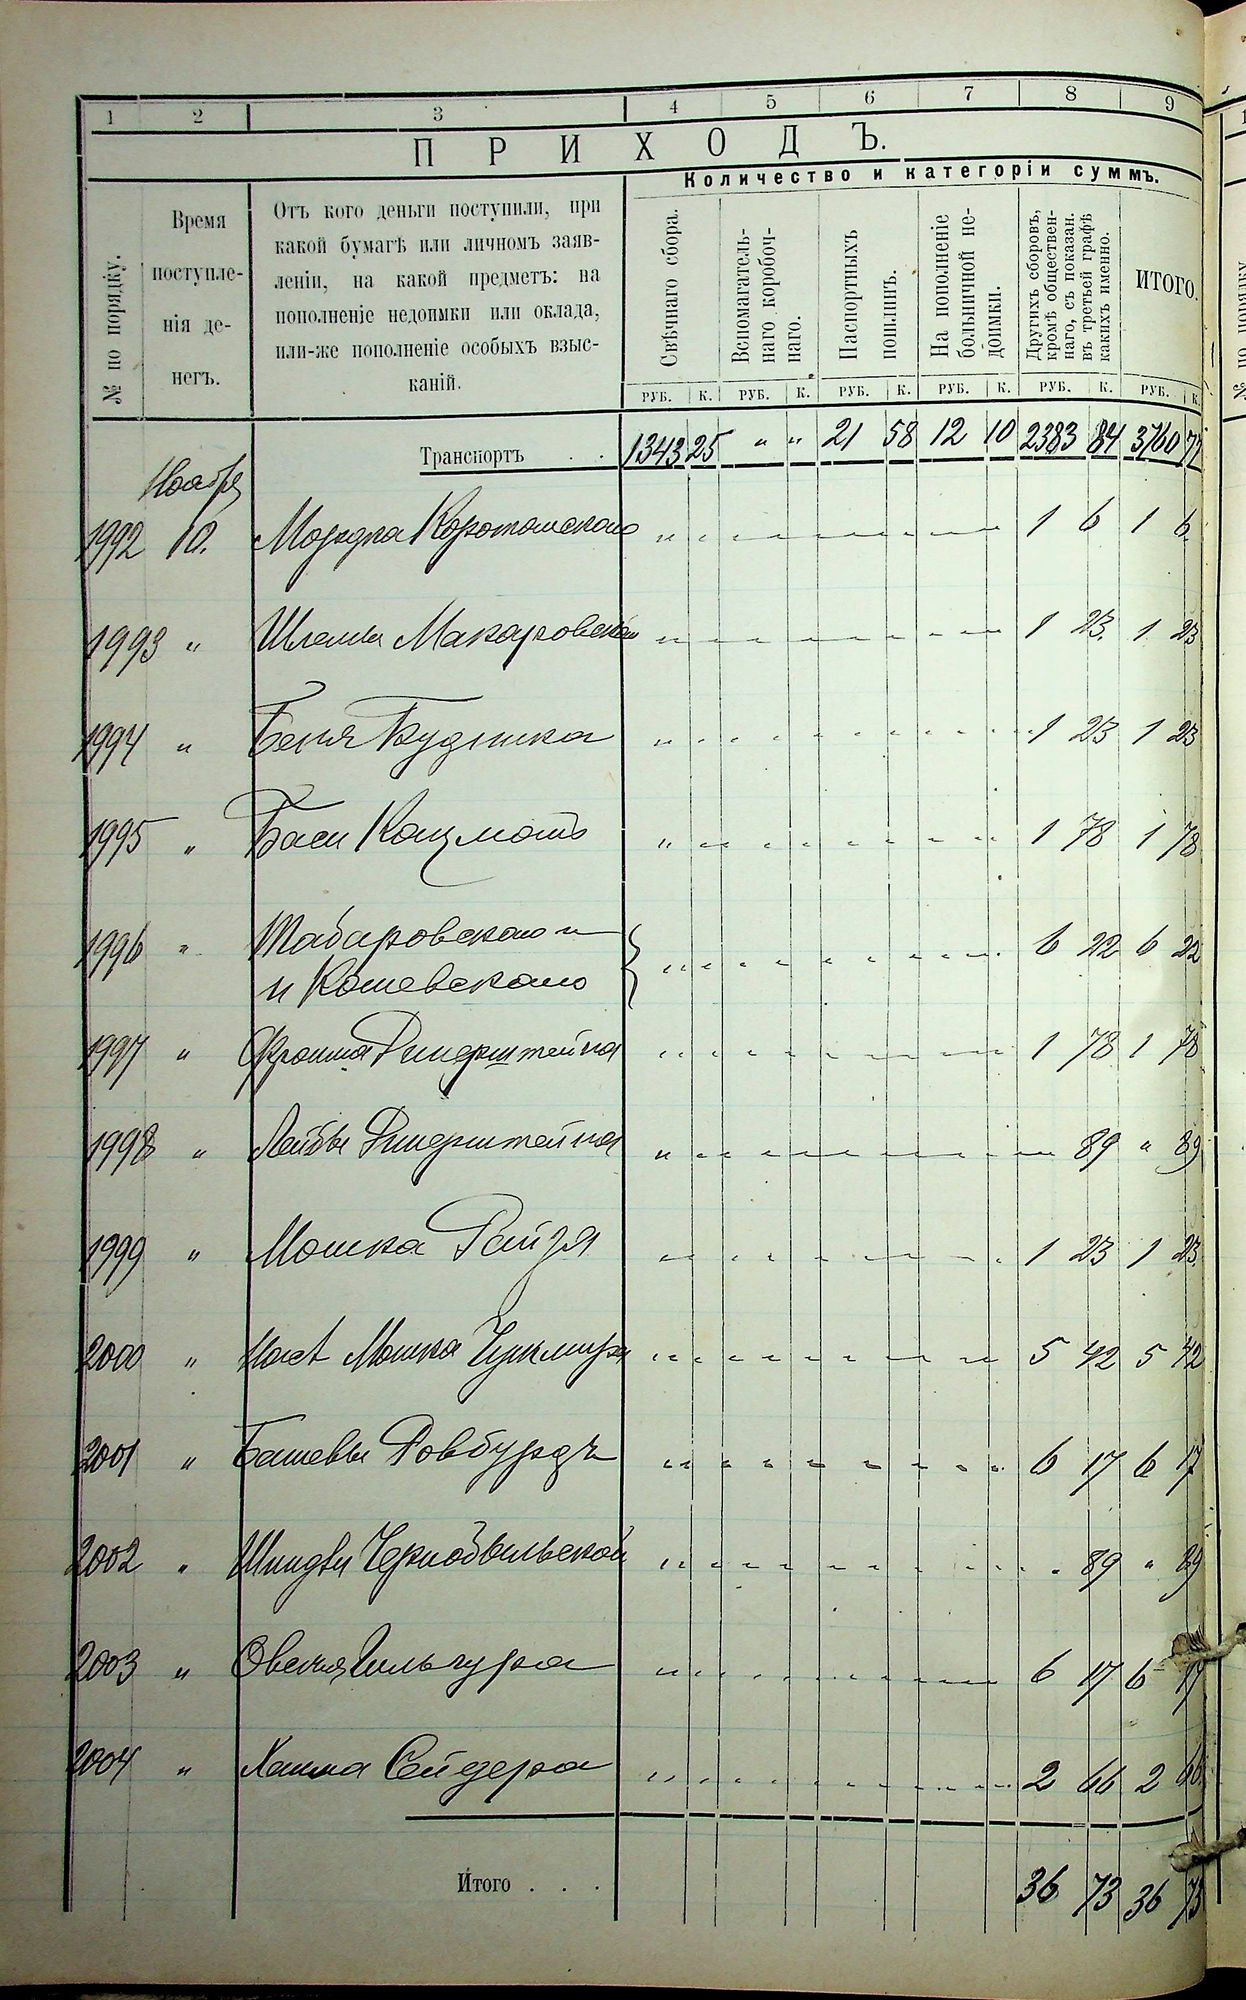 1 2 3 4 5 6 7 8 9
ПРИХОДЪ.
Количество и категоріи суммъ.
№ по порядку.
Время
поступле-
нія де-
негъ.
Отъ кого деньги поступили, при
какой бумагѣ или личномъ заяв-
леніи, на какой предметъ: на
пополненіе недоимки или оклада,
или-же пополненіе особыхъ взыс-
каній.
Свѣчнаго сбора.
Вспомагатель-
наго коробоч-
наго.
Паспортныхъ
пошлинъ.
На пополненіе
больничной не-
доимки.
Другихъ сборовъ,
кромѣ обществен-
наго, съ показан.
въ третьей графѣ
какихъ именно.
ИТОГО.
РУБ. К. РУБ. К. РУБ. К. РУБ. К. РУБ. К. РУБ. К.
Транспортъ . . 1343 25 " " 21 58 12 10 2383 84 3760 77
Ноабря
1992 10. Мордка Коротошского 1 6 1 6
1993 " Шлемы Макаровского 1 23 1 23
1994 " Беня Будника 1 23 1 23
1995 " Баси Кацмотъ 1 78 1 78
1996 " Табаровского и 6 22 6 22
и Кошевского
1997 " Фроима Динерштейна 1 78 1 78
1998 " Лейбы Динерштейна 89 " 89
1999 " Мошка Райзя 1 23 1 23
2000 " Мошка 5 42 5 42
2001 " Башевы 6 17 6 17
2002 " Чернобыльской 89 " 89
2003 " Овсея 6 17 6 17
2004 " Хаима Сейдера 2 66 2 66
Итого . . . 36 73 36 73